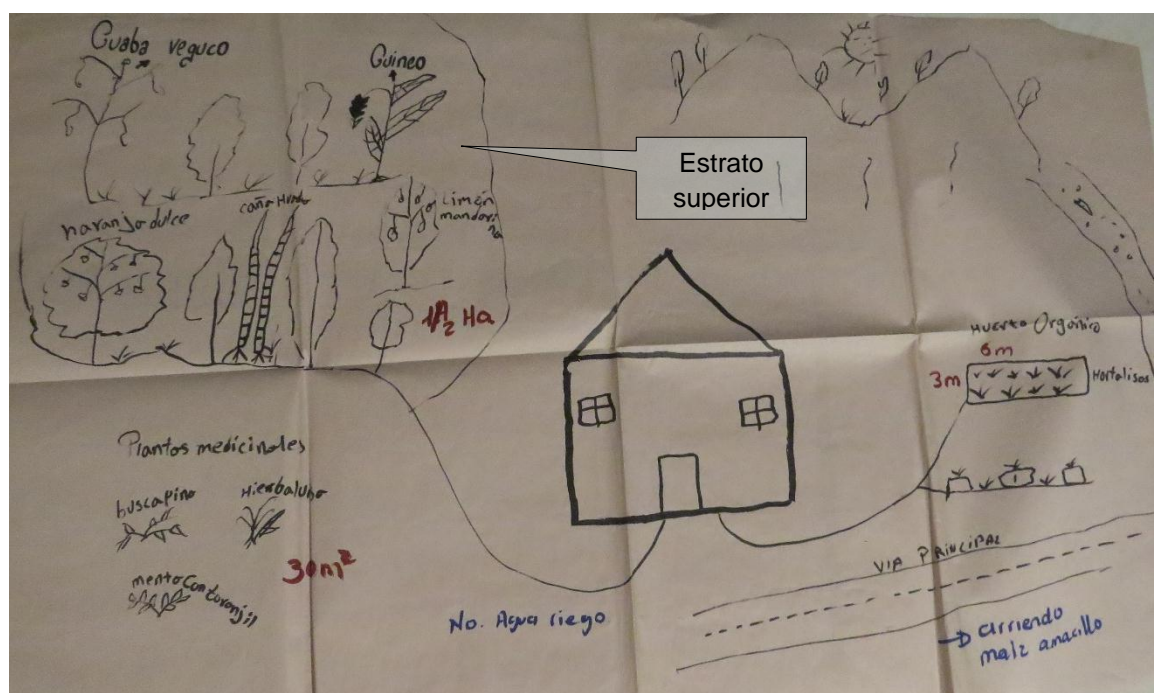 Guaba veguco
Guineo
Estrato
superior
naranjo dulce
caña
Limón
mandarina
1/2 Ha
Huerto Orgánico
6m
3m
Hortalisas
Plantas medicinales
buscapina
Hierbaluisa
menta
Contoronjil
30m²
No. Agua riego
VIA PRINCIPAL
arriendo
maiz amarillo